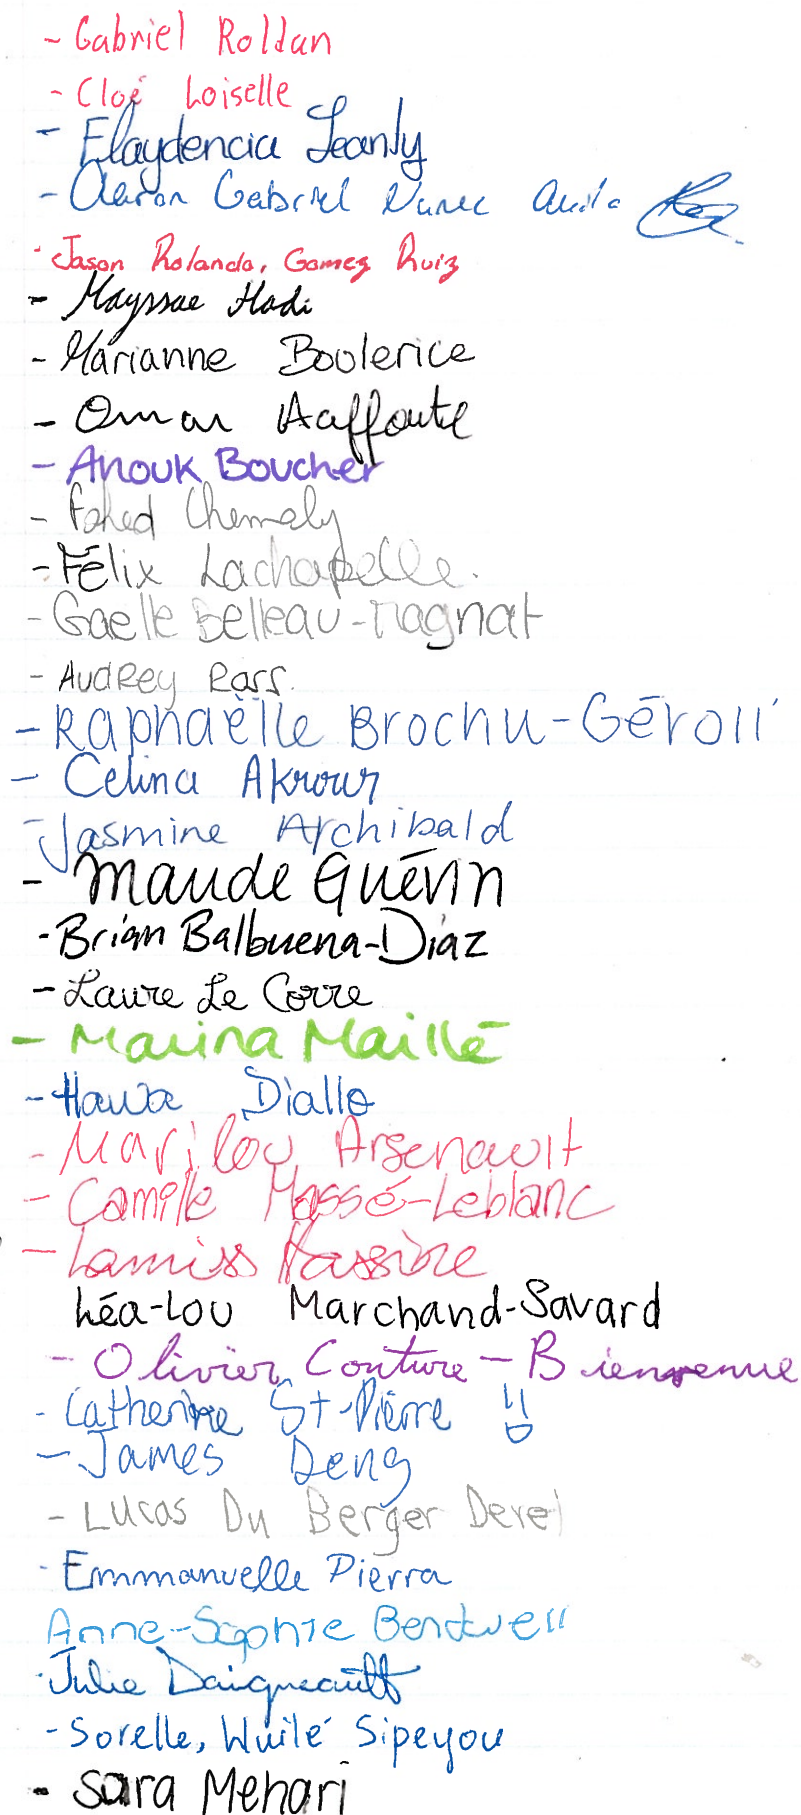 - Gabriel Roldan
- Cloé Loiselle
- Elaydencia Jeanly
- Aaron Gabriel Nunec Avila
- Jason Rolando, Gomez Ruiz
- Mayssae Hadi
- Marianne Boulerice
- Omar Aaffoute
- Anouk Boucher
- Fahed Chemaly
- Félix Lachapelle.
- Gaelle Belleau-Magnat
- Audrey
- Raphaëlle Brochu-
- Celina Akrour
- Jasmine Archibald
- Maude Guérin
- Brian Balbuena-Diaz
- Laure Le Corre
- Marina Maillé
- Hawa Diallo
- Marilou Arsenault
- Camille Massé-Leblanc
- Lamiss Hassine
Léa-Lou Marchand-Savard
- Olivier Couture-Bienvenue
- Catherine St-Pierre
- James Deng
- Lucas Du Berger Derel
- Emmanuelle Pierra
Anne-Sophie
- Julie Daigneault
- Sorelle, Wuilé Sipeyou
- Sara Mehari